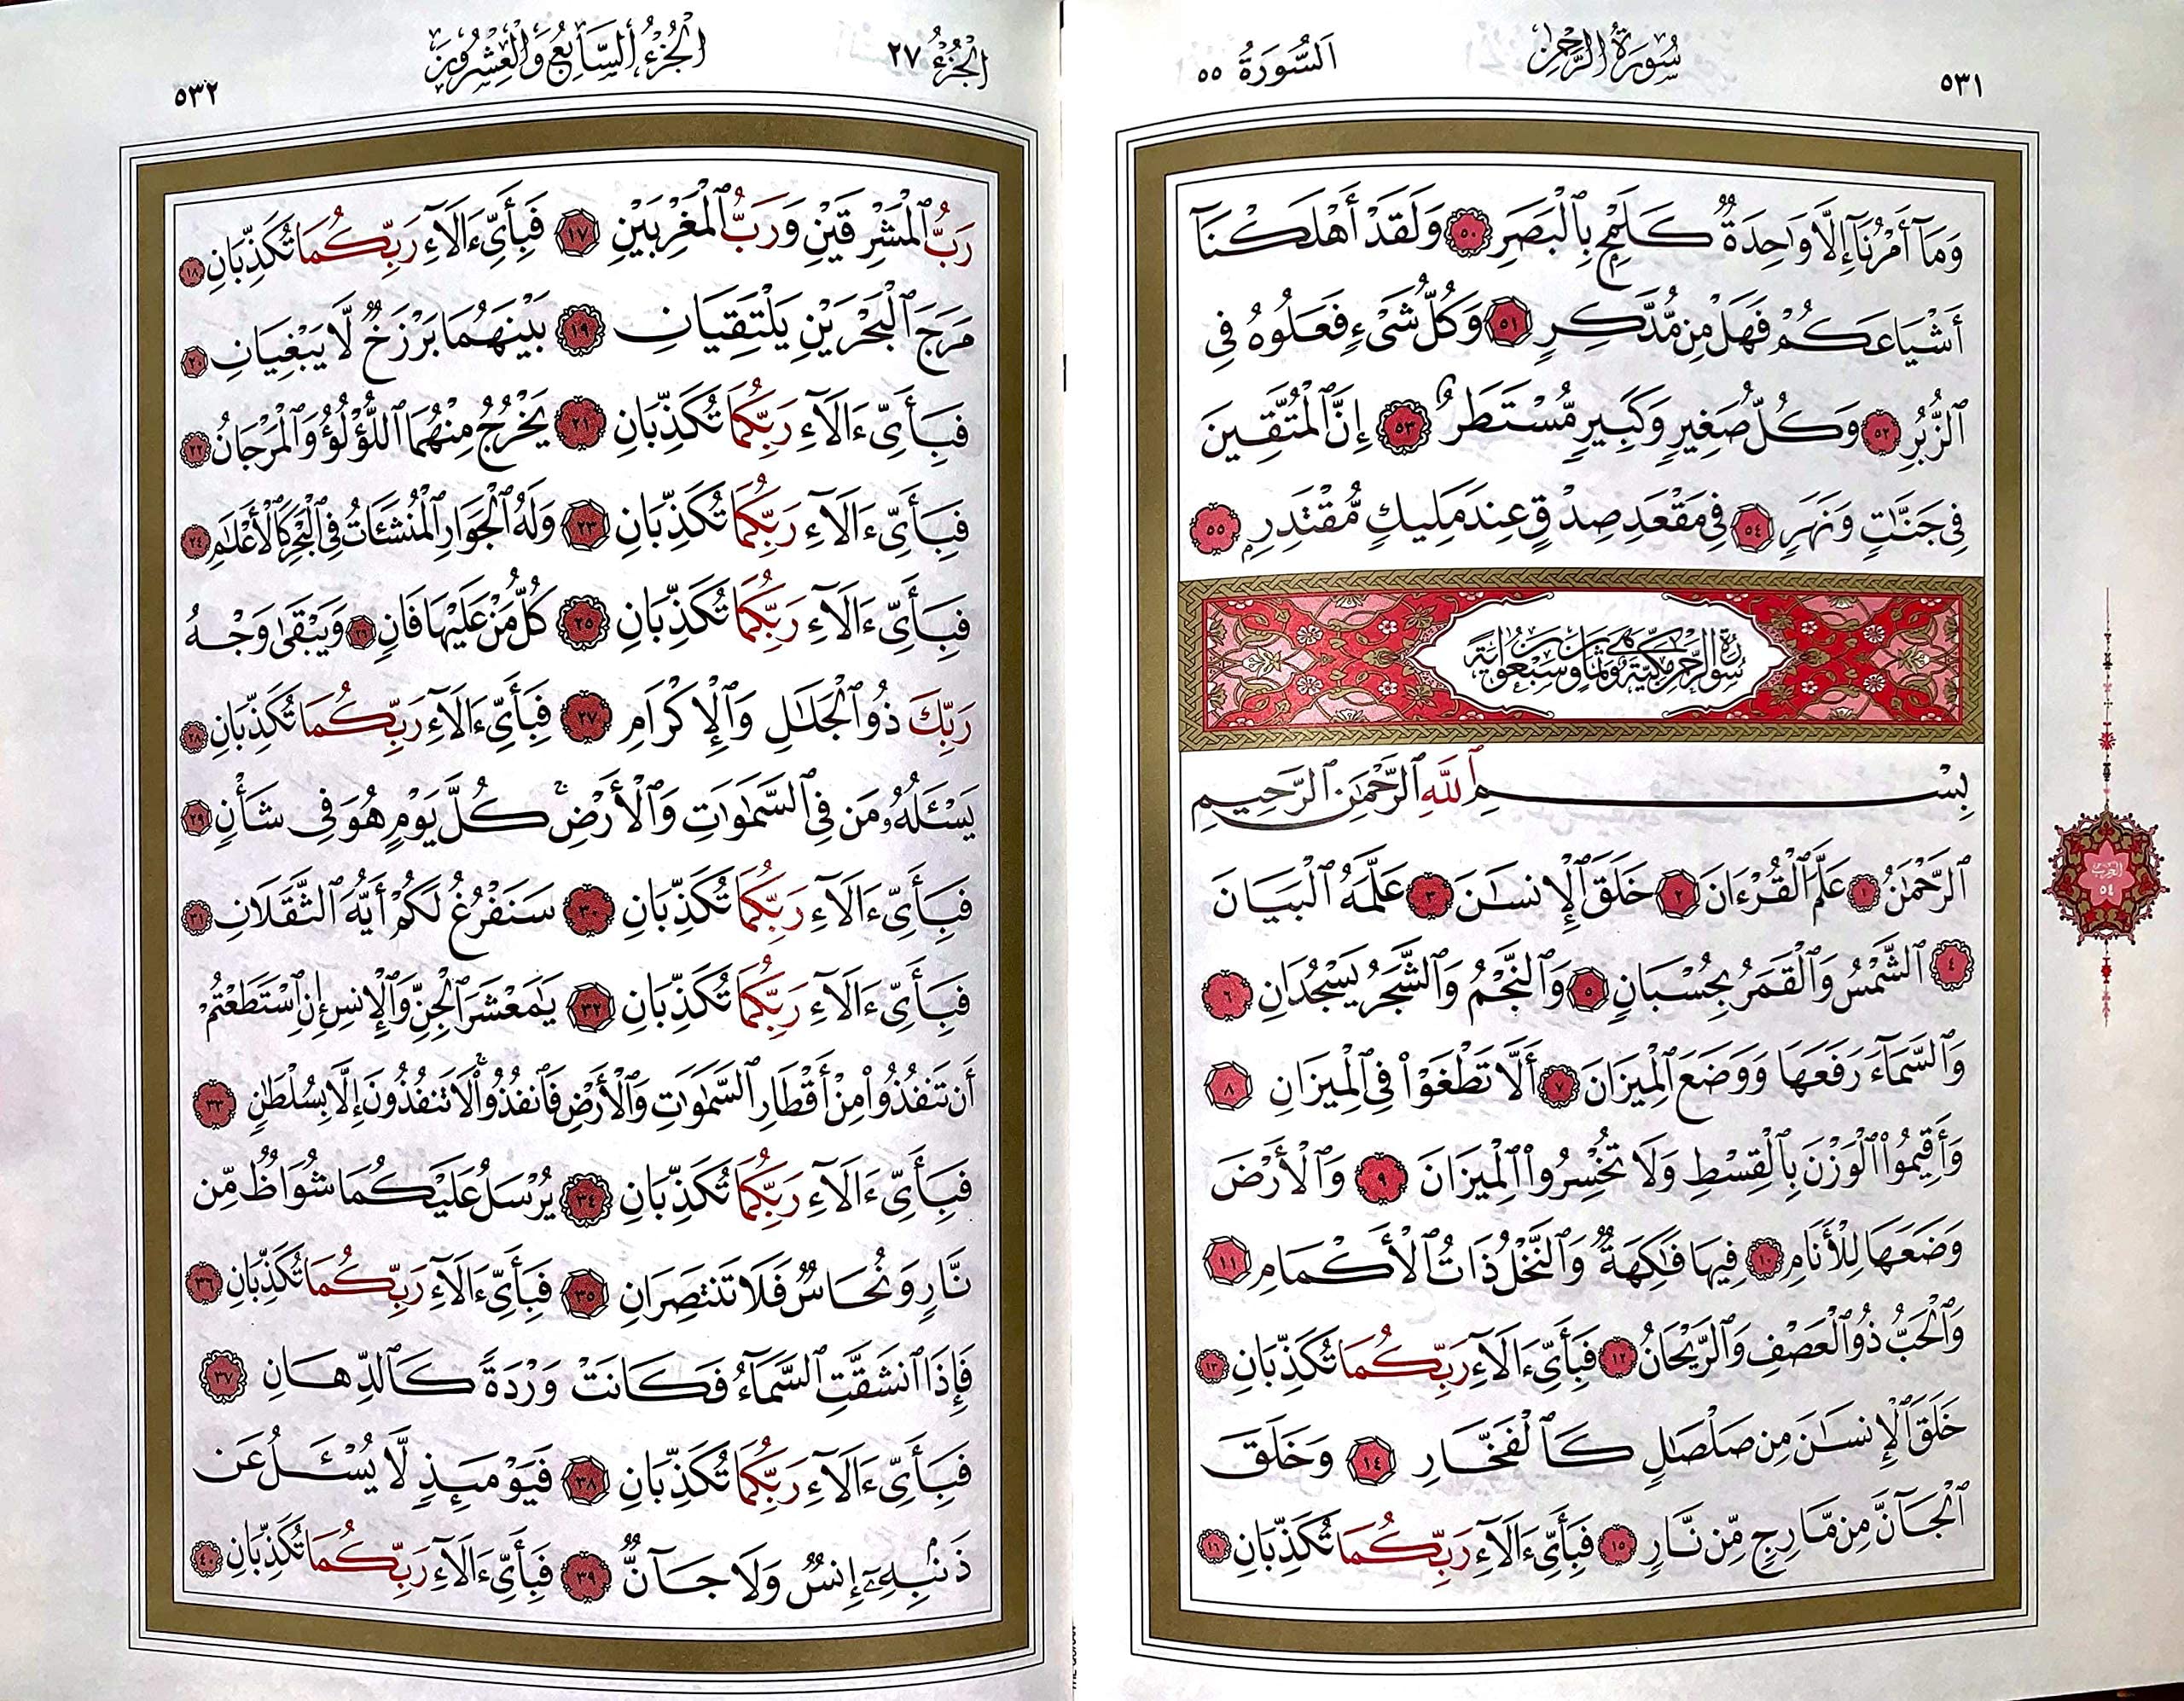 ٥٣١ سُورَةُ الرَّحْمٰن اَلسُّورَةُ ٥٥
وَمَآ أَمْرُنَآ إِلَّا وَٰحِدَةٌ كَلَمْحٍۭ بِٱلْبَصَرِ ٥٠ وَلَقَدْ أَهْلَكْنَآ
أَشْيَاعَكُمْ فَهَلْ مِن مُّدَّكِرٍ ٥١ وَكُلُّ شَىْءٍ فَعَلُوهُ فِى
ٱلزُّبُرِ ٥٢ وَكُلُّ صَغِيرٍ وَكَبِيرٍ مُّسْتَطَرٌ ٥٣ إِنَّ ٱلْمُتَّقِينَ
فِى جَنَّٰتٍ وَنَهَرٍ ٥٤ فِى مَقْعَدِ صِدْقٍ عِندَ مَلِيكٍ مُّقْتَدِرٍۭ ٥٥
سورة الرحمن مكية وهي ثمان وسبعون آية
بِسْمِ ٱللَّهِ ٱلرَّحْمَٰنِ ٱلرَّحِيمِ
ٱلرَّحْمَٰنُ ١ عَلَّمَ ٱلْقُرْءَانَ ٢ خَلَقَ ٱلْإِنسَٰنَ ٣ عَلَّمَهُ ٱلْبَيَانَ
٤ ٱلشَّمْسُ وَٱلْقَمَرُ بِحُسْبَانٍ ٥ وَٱلنَّجْمُ وَٱلشَّجَرُ يَسْجُدَانِ ٦
وَٱلسَّمَآءَ رَفَعَهَا وَوَضَعَ ٱلْمِيزَانَ ٧ أَلَّا تَطْغَوْا۟ فِى ٱلْمِيزَانِ ٨
وَأَقِيمُوا۟ ٱلْوَزْنَ بِٱلْقِسْطِ وَلَا تُخْسِرُوا۟ ٱلْمِيزَانَ ٩ وَٱلْأَرْضَ
وَضَعَهَا لِلْأَنَامِ ١٠ فِيهَا فَٰكِهَةٌ وَٱلنَّخْلُ ذَاتُ ٱلْأَكْمَامِ ١١
وَٱلْحَبُّ ذُو ٱلْعَصْفِ وَٱلرَّيْحَانُ ١٢ فَبِأَىِّ ءَالَآءِ رَبِّكُمَا تُكَذِّبَانِ ١٣
خَلَقَ ٱلْإِنسَٰنَ مِن صَلْصَٰلٍ كَٱلْفَخَّارِ ١٤ وَخَلَقَ
ٱلْجَآنَّ مِن مَّارِجٍ مِّن نَّارٍ ١٥ فَبِأَىِّ ءَالَآءِ رَبِّكُمَا تُكَذِّبَانِ ١٦
الحزب
٥٤
اَلْجُزْءُ ٢٧ اَلْجُزْءُ السَّابِعُ وَالْعِشْرُونَ ٥٣٢
رَبُّ ٱلْمَشْرِقَيْنِ وَرَبُّ ٱلْمَغْرِبَيْنِ ١٧ فَبِأَىِّ ءَالَآءِ رَبِّكُمَا تُكَذِّبَانِ ١٨
مَرَجَ ٱلْبَحْرَيْنِ يَلْتَقِيَانِ ١٩ بَيْنَهُمَا بَرْزَخٌ لَّا يَبْغِيَانِ ٢٠
فَبِأَىِّ ءَالَآءِ رَبِّكُمَا تُكَذِّبَانِ ٢١ يَخْرُجُ مِنْهُمَا ٱللُّؤْلُؤُ وَٱلْمَرْجَانُ ٢٢
فَبِأَىِّ ءَالَآءِ رَبِّكُمَا تُكَذِّبَانِ ٢٣ وَلَهُ ٱلْجَوَارِ ٱلْمُنشَـَٔاتُ فِى ٱلْبَحْرِ كَٱلْأَعْلَٰمِ ٢٤
فَبِأَىِّ ءَالَآءِ رَبِّكُمَا تُكَذِّبَانِ ٢٥ كُلُّ مَنْ عَلَيْهَا فَانٍ ٢٦ وَيَبْقَىٰ وَجْهُ
رَبِّكَ ذُو ٱلْجَلَٰلِ وَٱلْإِكْرَامِ ٢٧ فَبِأَىِّ ءَالَآءِ رَبِّكُمَا تُكَذِّبَانِ ٢٨
يَسْـَٔلُهُۥ مَن فِى ٱلسَّمَٰوَٰتِ وَٱلْأَرْضِ ۚ كُلَّ يَوْمٍ هُوَ فِى شَأْنٍ ٢٩
فَبِأَىِّ ءَالَآءِ رَبِّكُمَا تُكَذِّبَانِ ٣٠ سَنَفْرُغُ لَكُمْ أَيُّهَ ٱلثَّقَلَانِ ٣١
فَبِأَىِّ ءَالَآءِ رَبِّكُمَا تُكَذِّبَانِ ٣٢ يَٰمَعْشَرَ ٱلْجِنِّ وَٱلْإِنسِ إِنِ ٱسْتَطَعْتُمْ
أَن تَنفُذُوا۟ مِنْ أَقْطَارِ ٱلسَّمَٰوَٰتِ وَٱلْأَرْضِ فَٱنفُذُوا۟ ۚ لَا تَنفُذُونَ إِلَّا بِسُلْطَٰنٍ ٣٣
فَبِأَىِّ ءَالَآءِ رَبِّكُمَا تُكَذِّبَانِ ٣٤ يُرْسَلُ عَلَيْكُمَا شُوَاظٌ مِّن
نَّارٍ وَنُحَاسٌ فَلَا تَنتَصِرَانِ ٣٥ فَبِأَىِّ ءَالَآءِ رَبِّكُمَا تُكَذِّبَانِ ٣٦
فَإِذَا ٱنشَقَّتِ ٱلسَّمَآءُ فَكَانَتْ وَرْدَةً كَٱلدِّهَانِ ٣٧
فَبِأَىِّ ءَالَآءِ رَبِّكُمَا تُكَذِّبَانِ ٣٨ فَيَوْمَئِذٍ لَّا يُسْـَٔلُ عَن
ذَنۢبِهِۦٓ إِنسٌ وَلَا جَآنٌّ ٣٩ فَبِأَىِّ ءَالَآءِ رَبِّكُمَا تُكَذِّبَانِ ٤٠